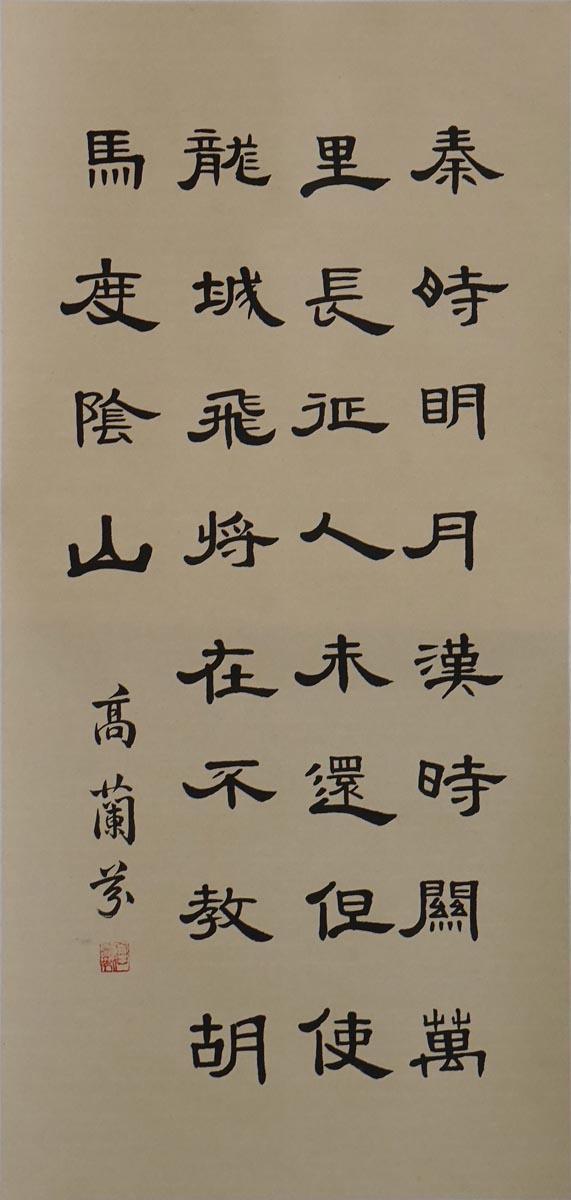 秦時明月漢時關萬
里長征人未還但使
龍城飛將在不教胡
馬度陰山
高蘭芬